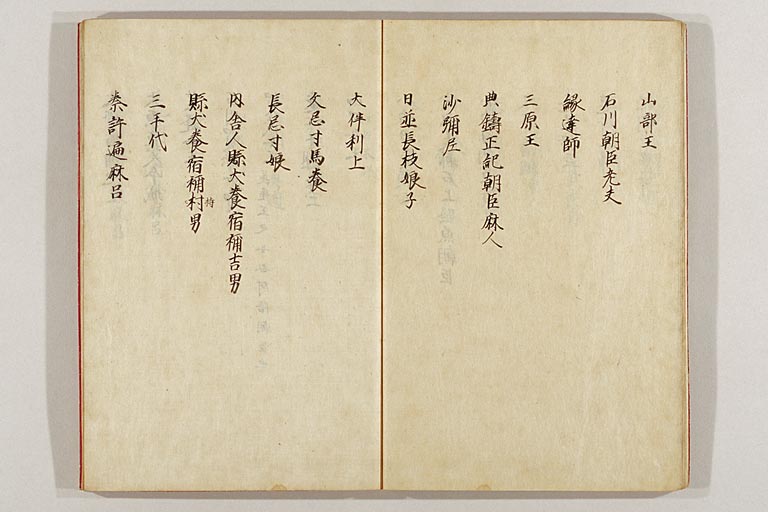 山部王
石川朝臣老夫
縁達師
三原王
典鑄正紀朝臣麻人
沙彌尼
日並長枝娘子
大伴利上
文忌寸馬養二
長忌寸娘
内舎人縣犬養宿祢吉男
縣犬養宿祢村男
持
三手代
秦許遍麻呂